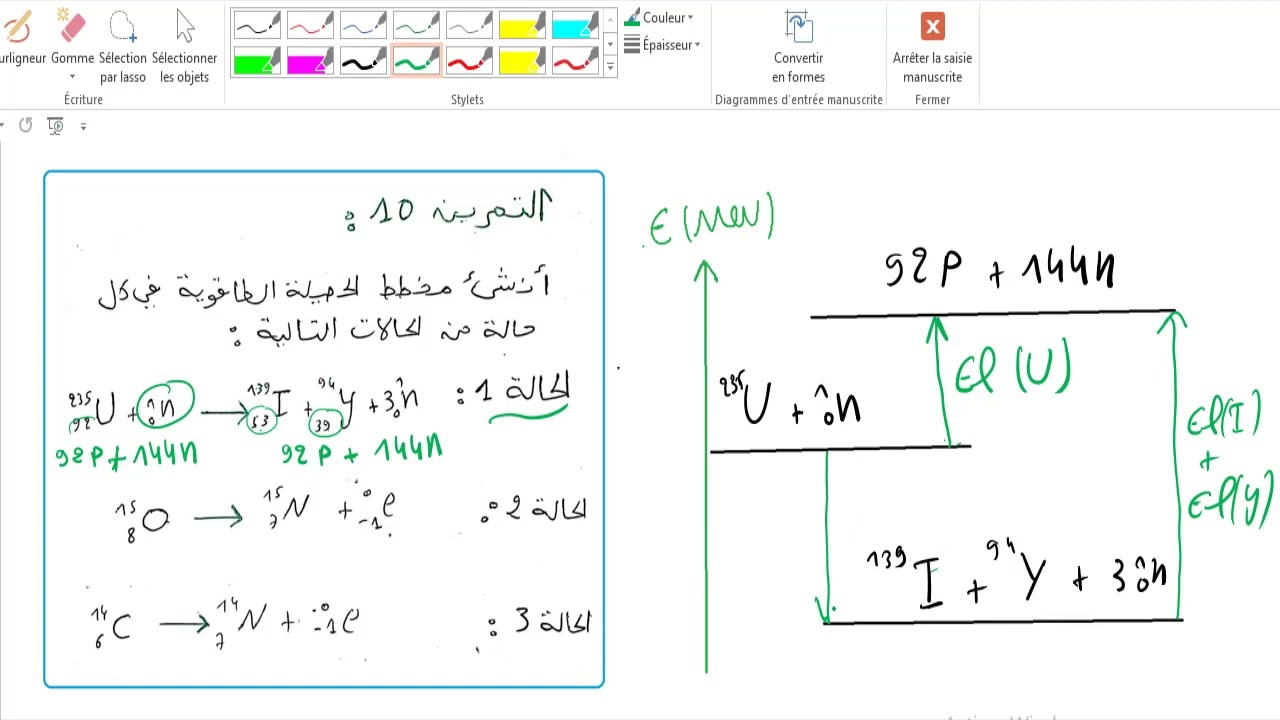 urligneur Gomme Sélection par lasso Sélectionner les objets
Écriture
Stylets
Couleur
Épaisseur
Convertir en formes
Diagrammes d'entrée manuscrite
Arrêter la saisie manuscrite
Fermer
التمرين 10 :
أنشئ مخطط الحصيلة الطاقوية في كل
حالة من الحالات التالية :
الحالة 1 : ²³⁵₉₂U + ¹₀n → ¹³⁹₅₃I + ⁹⁴₃₉Y + 3¹₀n
92P + 144n 92P + 144n
الحالة 2 : ¹⁵₈O → ¹⁵₇N + ⁰₋₁e
الحالة 3 : ¹⁴₆C → ¹⁴₇N + ⁰₋₁e
E(MeV)
92P + 144n
El (U)
²³⁵U + ¹₀n
El(I)
+
El(y)
¹³⁹I + ⁹⁴Y + 3¹₀n